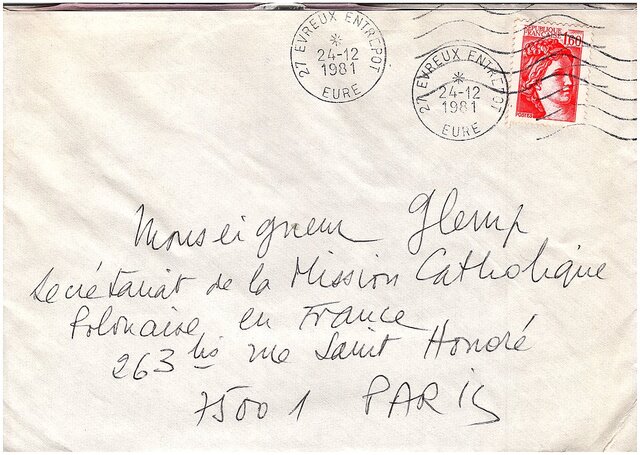 27 EVREUX ENTREPOT
24-12
1981
EURE
27 EVREUX ENTREPOT
24-12
1981
EURE
REPUBLIQUE
FRANÇAISE
1,60
POSTES
Monseigneur Glemp
Secrétariat de la Mission Catholique
Polonaise en France
263 bis rue Saint Honoré
75001 PARIS